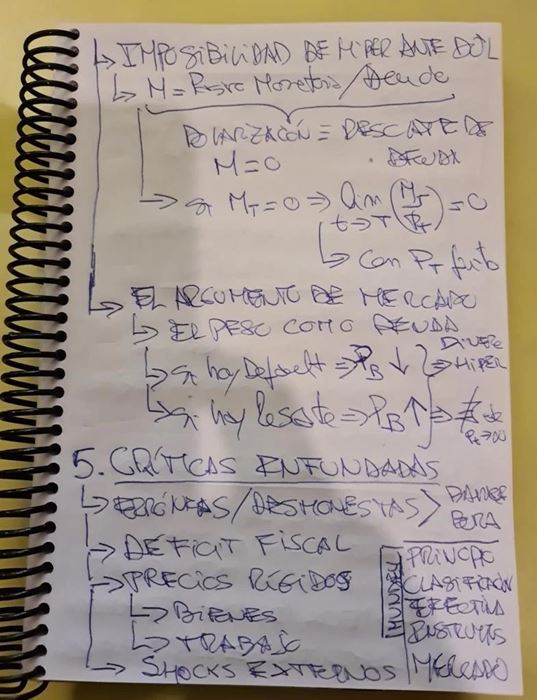 ↳ IMPOSIBILIDAD DE HIPER ANTE DOL
↳ M = Monetaria / Deuda
DOLARIZACIÓN ≡ RESCATE DE
M = 0 DEUDA
↳ si M_T = 0 ⇒ lim t→T (M_T/P_T) = 0
↳ con P_T finito
↳ EL ARGUMENTO DE MERCADO
↳ EL PESO COMO DEUDA
↳ si hay Default ⇒ P_B ↓ ⇒ HIPER
↳ si hay Rescate ⇒ P_B ↑ ⇒ ∄ de P_t→∞
5. CRÍTICAS INFUNDADAS
↳ ERRÓNEAS / DESHONESTAS >
↳ DÉFICIT FISCAL
↳ PRECIOS RÍGIDOS
↳ BIENES
↳ TRABAJO
↳ SHOCKS EXTERNOS
MUNDELL
PRINCIPIO
CLASIFICACIÓN
EFECTIVA
INSTRUMTS
MERCADO